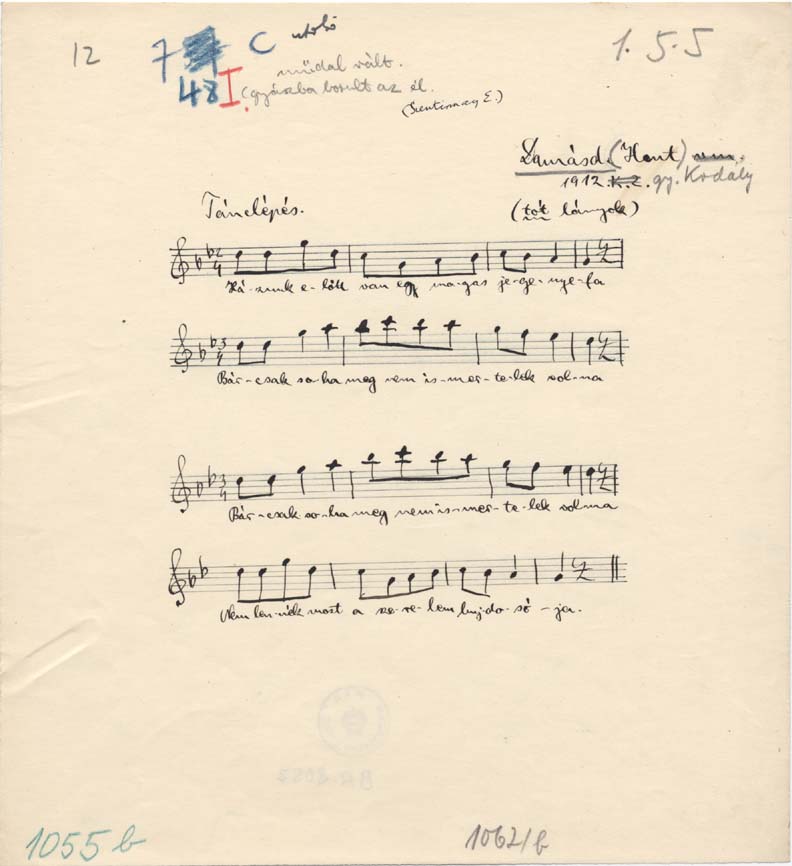 12
7 C utolsó
1. 5. 5
műdal vált.
48 I. (gyászba borult az él.
(Szentirmay E.)
Damásd. (Hont)
1912. K. Z. gy. Kodály
Tánclépés.
(tót lányok)
2 4
Há-zunk e-lőtt van egy ma-gas je-ge-nye-fa
3 4
Bár-csak so-ha meg nem is-mer-te-lek vol-na
3 4
Bár-csak so-ha meg nem is-mer-te-lek vol-na
Nem len-nék most a sze-re-lem buj-do-só-ja.
1055 b
1062/b